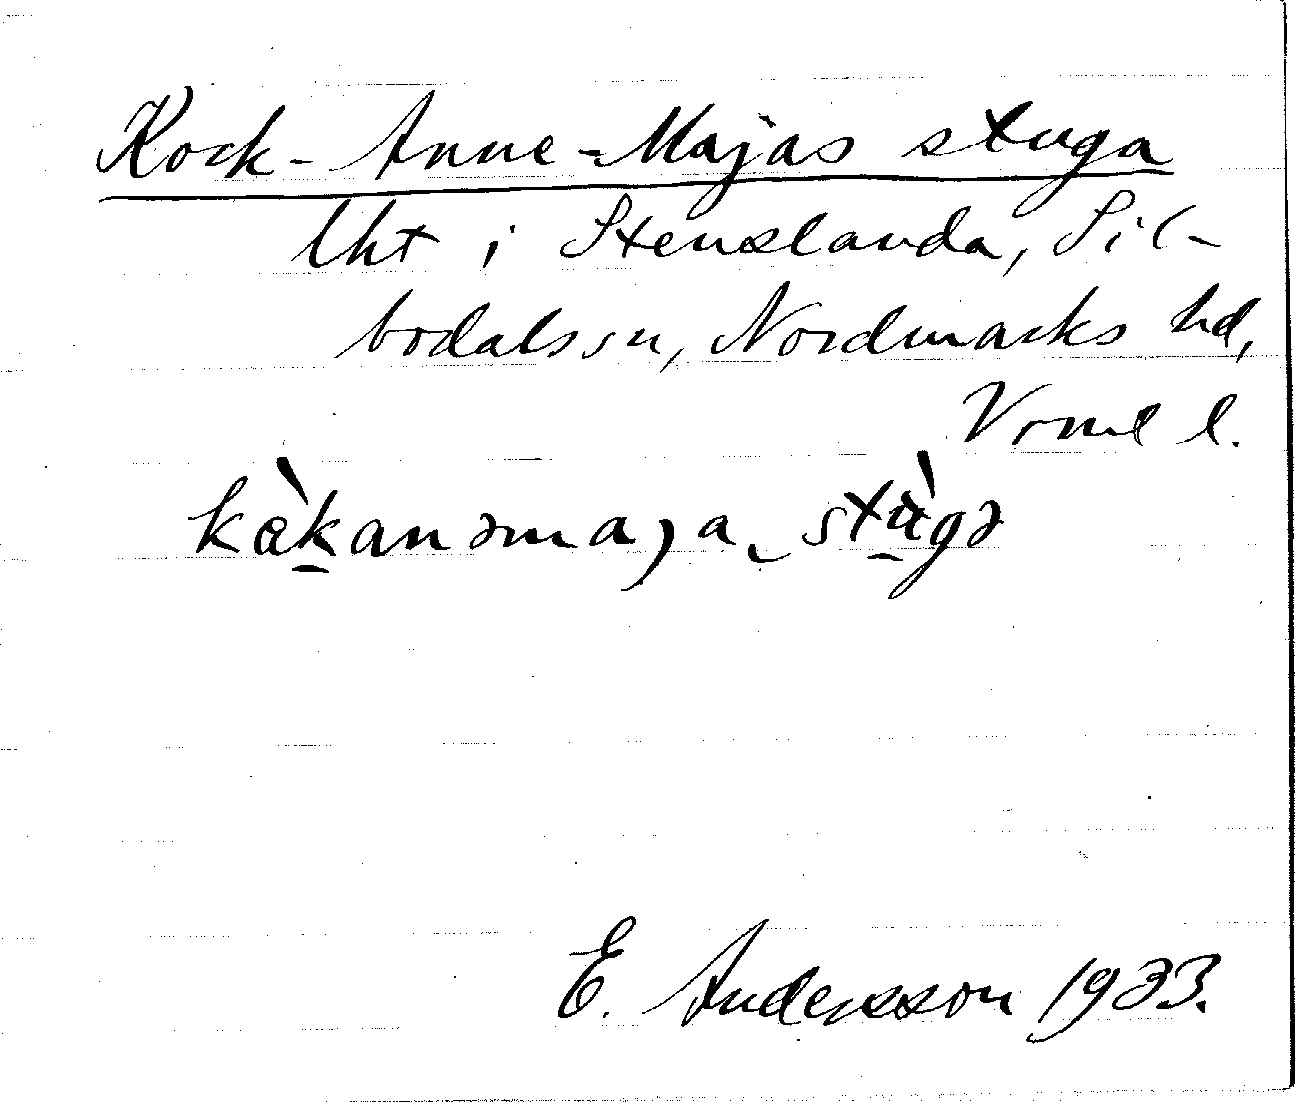 Kock-Anne-Majas stuga
lht i Stenslanda, Sil-
bodals sn, Nordmarks hd,
Vrml l.
kàk̠anəmaja ̮stà̠gə
E. Andersson 1933.